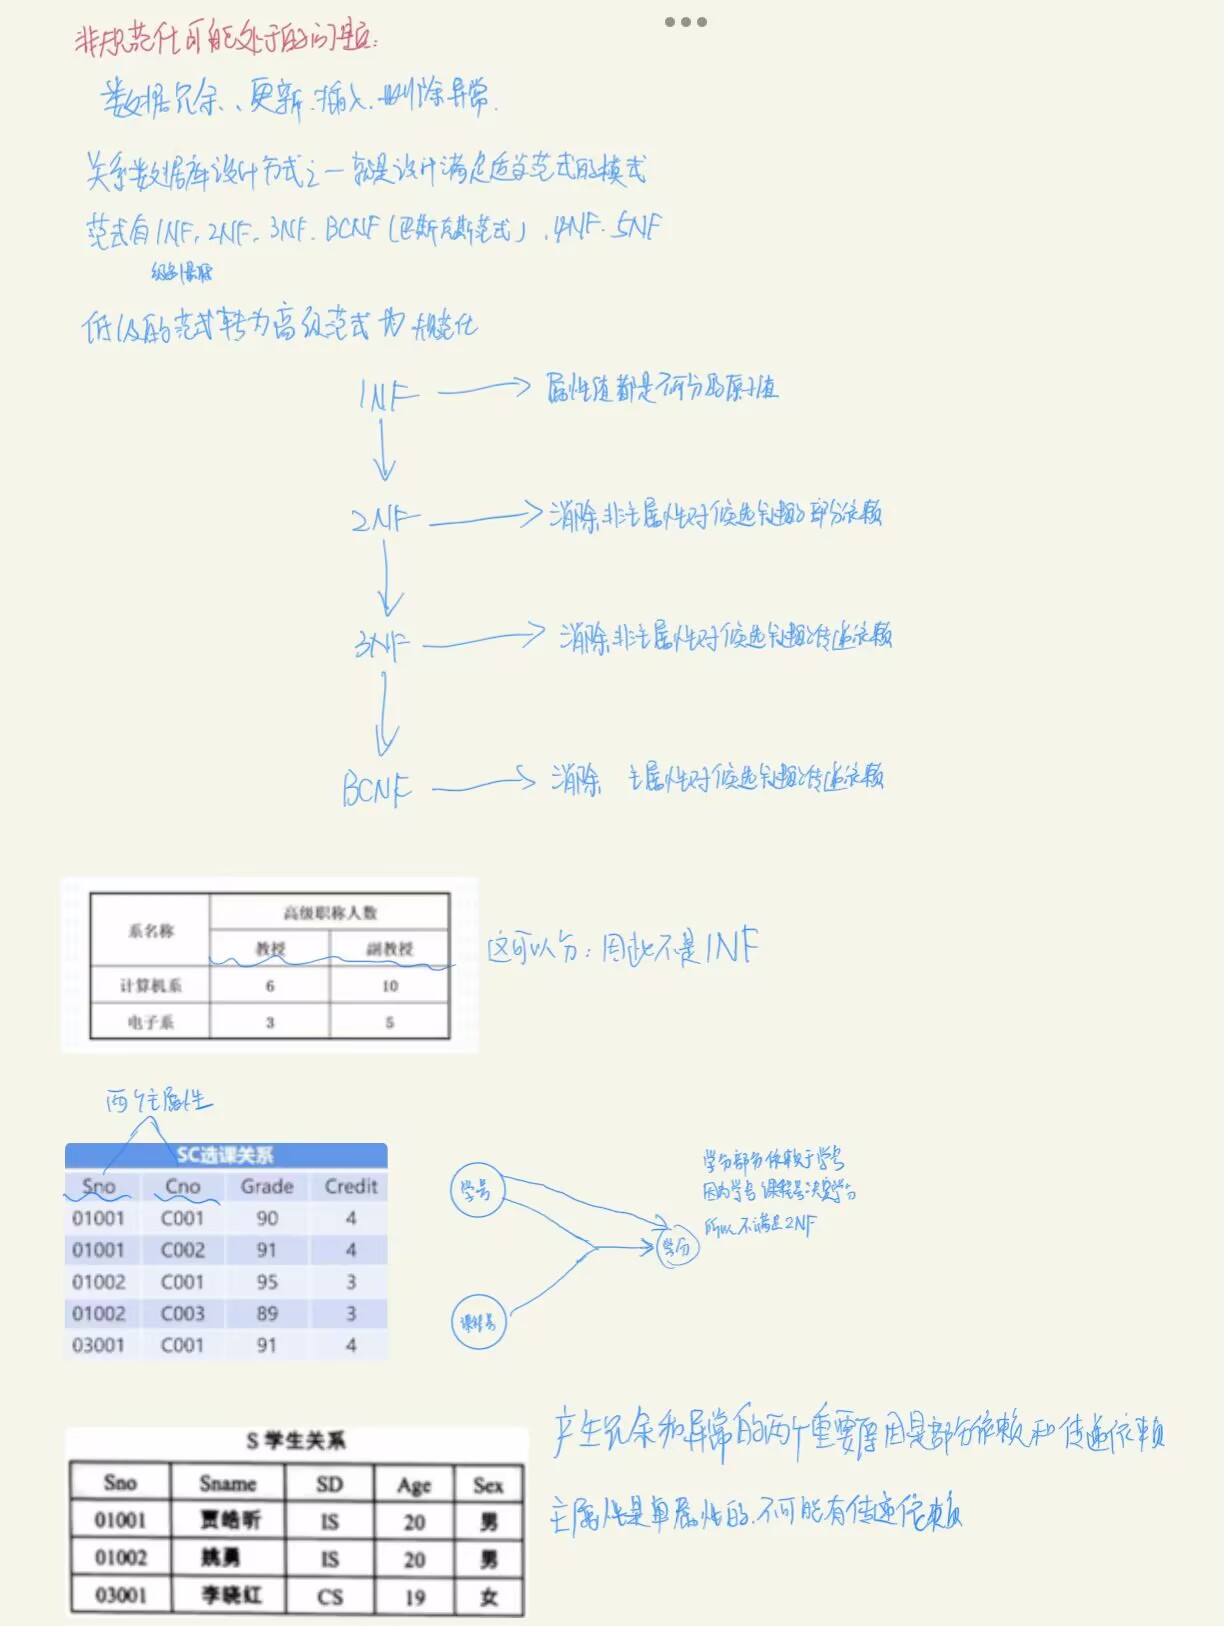 非规范化可能处于的问题:
数据冗余、更新、插入、删除异常.
关系数据库设计方式之一就是设计满足适当范式的模式
范式有1NF, 2NF, 3NF. BCNF(巴斯克斯范式)、4NF. 5NF
低级的范式转为高级范式为规范化
1NF → 属性值都是不可分的原子值
2NF → 消除非主属性对候选键的部分依赖
3NF → 消除非主属性对候选键的传递依赖
BCNF → 消除 主属性对候选键的传递依赖
系名称 高级职称人数
教授 副教授
计算机系 6 10
电子系 3 5
这可以分;因此不是1NF
两个主属性
SC选课关系
Sno Cno Grade Credit
01001 C001 90 4
01001 C002 91 4
01002 C001 95 3
01002 C003 89 3
03001 C001 91 4
学号
学分
课程号
学分部分依赖于学号
因为学号 课程号决定学分
所以不满足2NF
S 学生关系
Sno Sname SD Age Sex
01001 贾皓昕 IS 20 男
01002 姚勇 IS 20 男
03001 李晓红 CS 19 女
产生冗余和异常的两个重要原因是部分依赖和传递依赖
主属性是单属性的.不可能有传递依赖